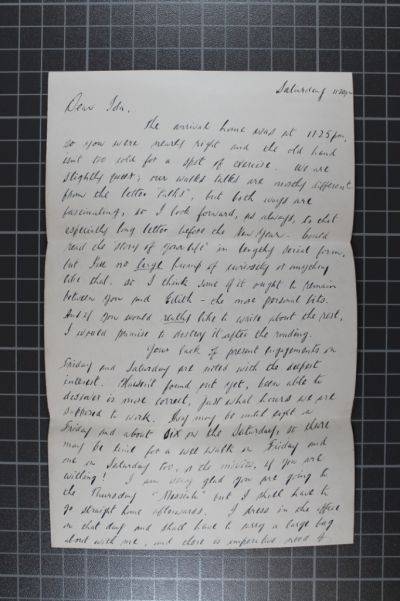 Saturday 11.30pm
Dear Ida,
The arrival home was at 11.25pm,
so you were nearly right and the old hand
isnt too cold for a spot of exercise. We are
slightly queer; our walks talks are mostly different
from the letter "talks", but both ways are
fascinating, so I look forward, as always, to that
especially long letter before the New Year. Could
read the story of your life in lengthy serial form,
but I've no large bump of curiosity or anything
like that, so I think some of it ought to remain
between you and Edith - the more personal bits.
And if you would really like to write about the rest,
I would promise to destroy it after the reading.
Your lack of present engagements on
Friday and Saturday are noted with the deepest
interest. Haven't found out yet, been able to
discover is more correct, just what hours we are
supposed to work. They may be until eight on
Friday and about six on the Saturday, so there
may be time for a wee walk on Friday and
one on Saturday too, or the movies, if you are
willing! I am very glad you are going to
the Thursday "Messiah" but I shall have to
go straight home afterwards. I dress in the office
on that day and shall have to carry a large bag
about with me, and there is imperative need of